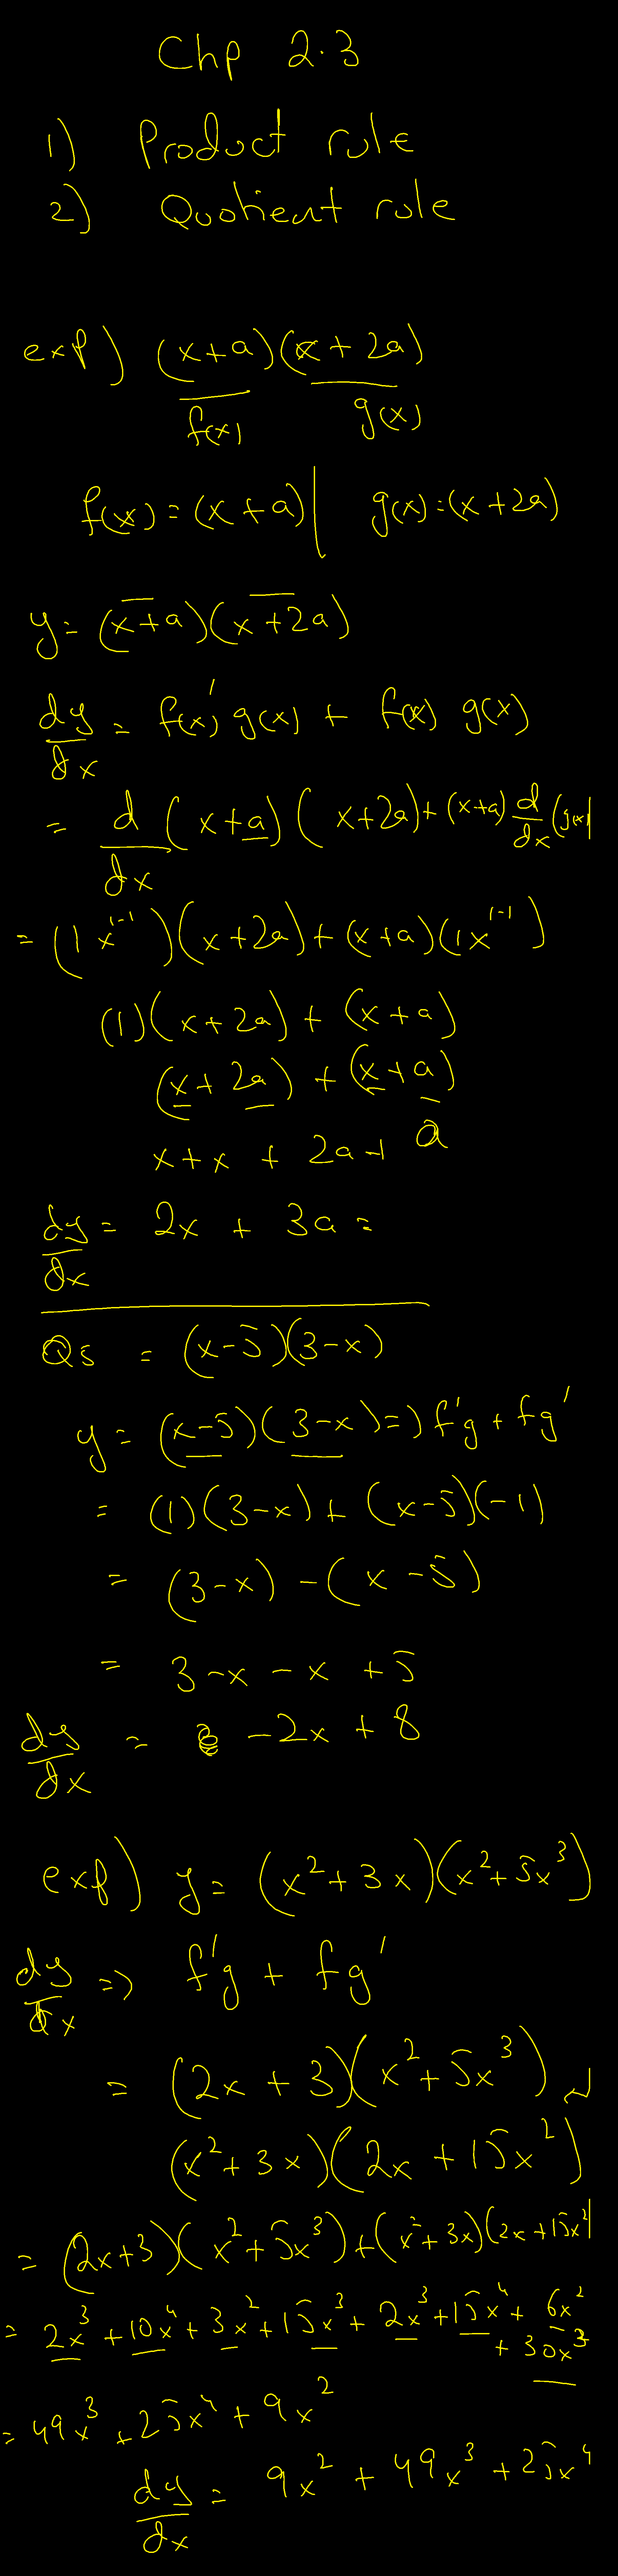 Chp 2.3
1) Product rule
2) Quotient rule
exp) (x+a)(x+2a)
f(x) g(x)
f(x) = (x+a) | g(x) = (x+2a)
y = (x+a)(x+2a)
dy/dx = f(x)' g(x) + f(x) g(x)
= d/dx (x+a)(x+2a) + (x+a) d/dx (g(x)
= (1x^1-1)(x+2a) + (x+a)(1x^1-1)
(1)(x+2a) + (x+a)
(x+2a) + (x+a)
x+x + 2a + a
dy/dx = 2x + 3a =
Qs = (x-5)(3-x)
y = (x-5)(3-x) => f'g + fg'
= (1)(3-x) + (x-5)(-1)
= (3-x) - (x-5)
= 3-x-x+5
dy/dx = -2x + 8
exp) y = (x²+3x)(x²+5x³)
dy/dx => f'g + fg'
= (2x+3)(x²+5x³) +
(x²+3x)(2x+15x²)
= (2x+3)(x²+5x³)+(x²+3x)(2x+15x²)
= 2x³+10x⁴+3x²+15x³+2x³+15x⁴+6x²
+30x³
= 49x³+25x⁴+9x²
dy/dx = 9x²+49x³+25x⁴